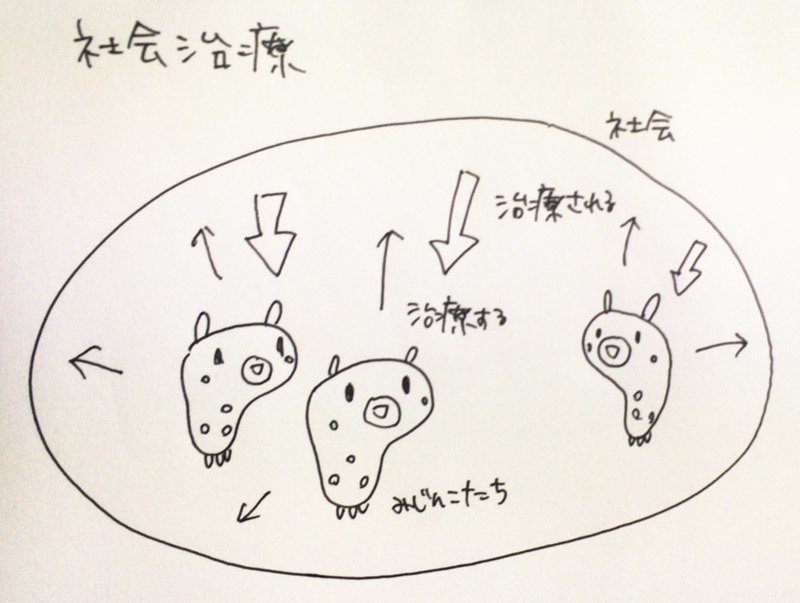 社会治療
社会
治療される
治療する
みじんこたち